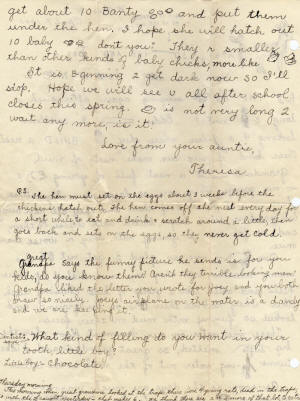 get about 10 Banty and put them
under the hen. I hope she will hatch out
10 baby don't you? They r smaller
than other kinds of baby chicks, more like
It is beginning 2 get dark now so I'll
stop. Hope we will see u all after school
closes this spring. is not very long 2
wait any more, is it?
Love from your auntie,
Theresa
P.S. The hen must set on the eggs about 3 weeks before the
chickens hatch out. The hen comes off the nest every day for
a short while to eat and drink & scratch around a little, then
goes back and sets on the eggs, so they never get cold.
great
Grandpa says the funny picture he sends is for you
do you know them? Aren't they terrible looking men?
Grandpa liked the letter you wrote for Joey and you both
drew so nicely. Joeys airplane on the water is a dandy
and we are keeping it.
Dentist: What kind of filling do you want in your
tooth, little boy?
Chocolate
Thursday morning
This morning when great grandma looked at the